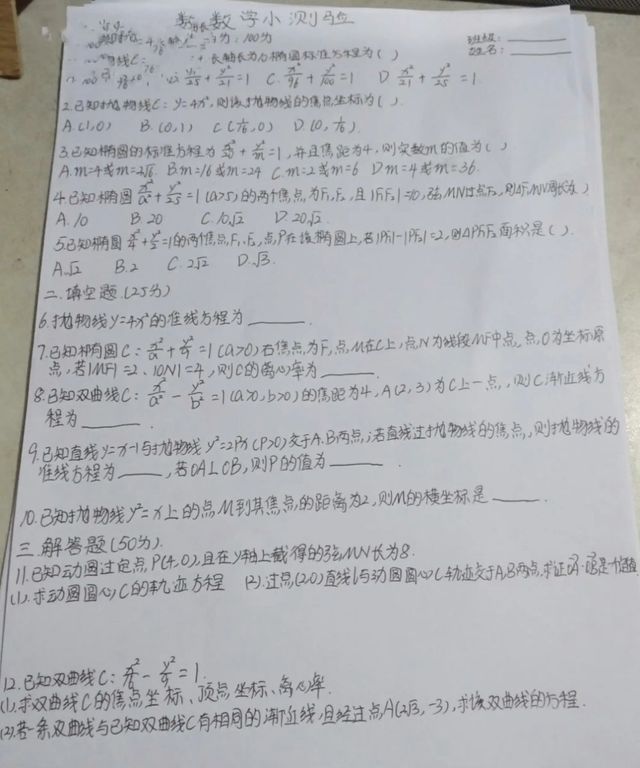 数学小测验
班级:
姓名:
满分:100分
长轴长为10椭圆标准方程为( )
x²/25 + y²/21 =1 C. x²/96 + y²/100 =1 D. x²/21 + y²/25 =1
2.已知抛物线C: y=4x²,则该抛物线的焦点坐标为( ).
A.(1,0) B.(0,1) C.(1/16,0) D.(0,1/16).
3.已知椭圆的标准方程为 =1,并且焦距为4,则实数m的值为( )
A.m=4或m=2√6. B.m=16或m=24 C.m=2或m=6 D.m=4或m=36.
4.已知椭圆 x²/a² + y²/25 =1(a>5)的两个焦点为F₁,F₂,且|F₁F₂|=10,弦MN过点F₂,则△F₁MN周长为( )
A.10 B.20 C.10√2 D.20√2.
5.已知椭圆 x²/4 + y²/2 =1的两个焦点,F₁,F₂,点P在该椭圆上,若|PF₁|-|PF₂|=2,则△PF₁F₂面积是( ).
A.√2 B.2 C.2√2 D.√3.
二.填空题.(25分)
6.抛物线y=4x²的准线方程为 .
7.已知椭圆C: x²/a² + y²/9 =1(a>0)右焦点为F,点M在C上,点N为线段MF中点,点O为坐标原
点,若|MF|=2、|ON|=4,则C的离心率为 .
8.已知双曲线C: x²/a² - y²/b² =1(a>0,b>0)的焦距为4,A(2,3)为C上一点,则C渐近线方
程为 .
9.已知直线y=x-1与抛物线y²=2px(P>0)交于A.B两点;若直线过抛物线的焦点,则抛物线的
准线方程为 ,若OA⊥OB,则P的值为 .
10.已知抛物线y²=x上的点M到其焦点的距离为2,则M的横坐标是 .
三.解答题(50分).
11.已知动圆过定点,P(4,0),且在y轴上截得的弦MN长为8.
(1).求动圆圆心C的轨迹方程 (2).过点(2,0)直线l与动圆圆心C轨迹交于A,B两点,求证OA·OB是一个定值
12.已知双曲线C: =1.
(1).求双曲线C的焦点坐标、顶点坐标、离心率.
(2).若一条双曲线与已知双曲线C有相同的渐近线,且经过点A(2√3,-3),求该双曲线的方程.